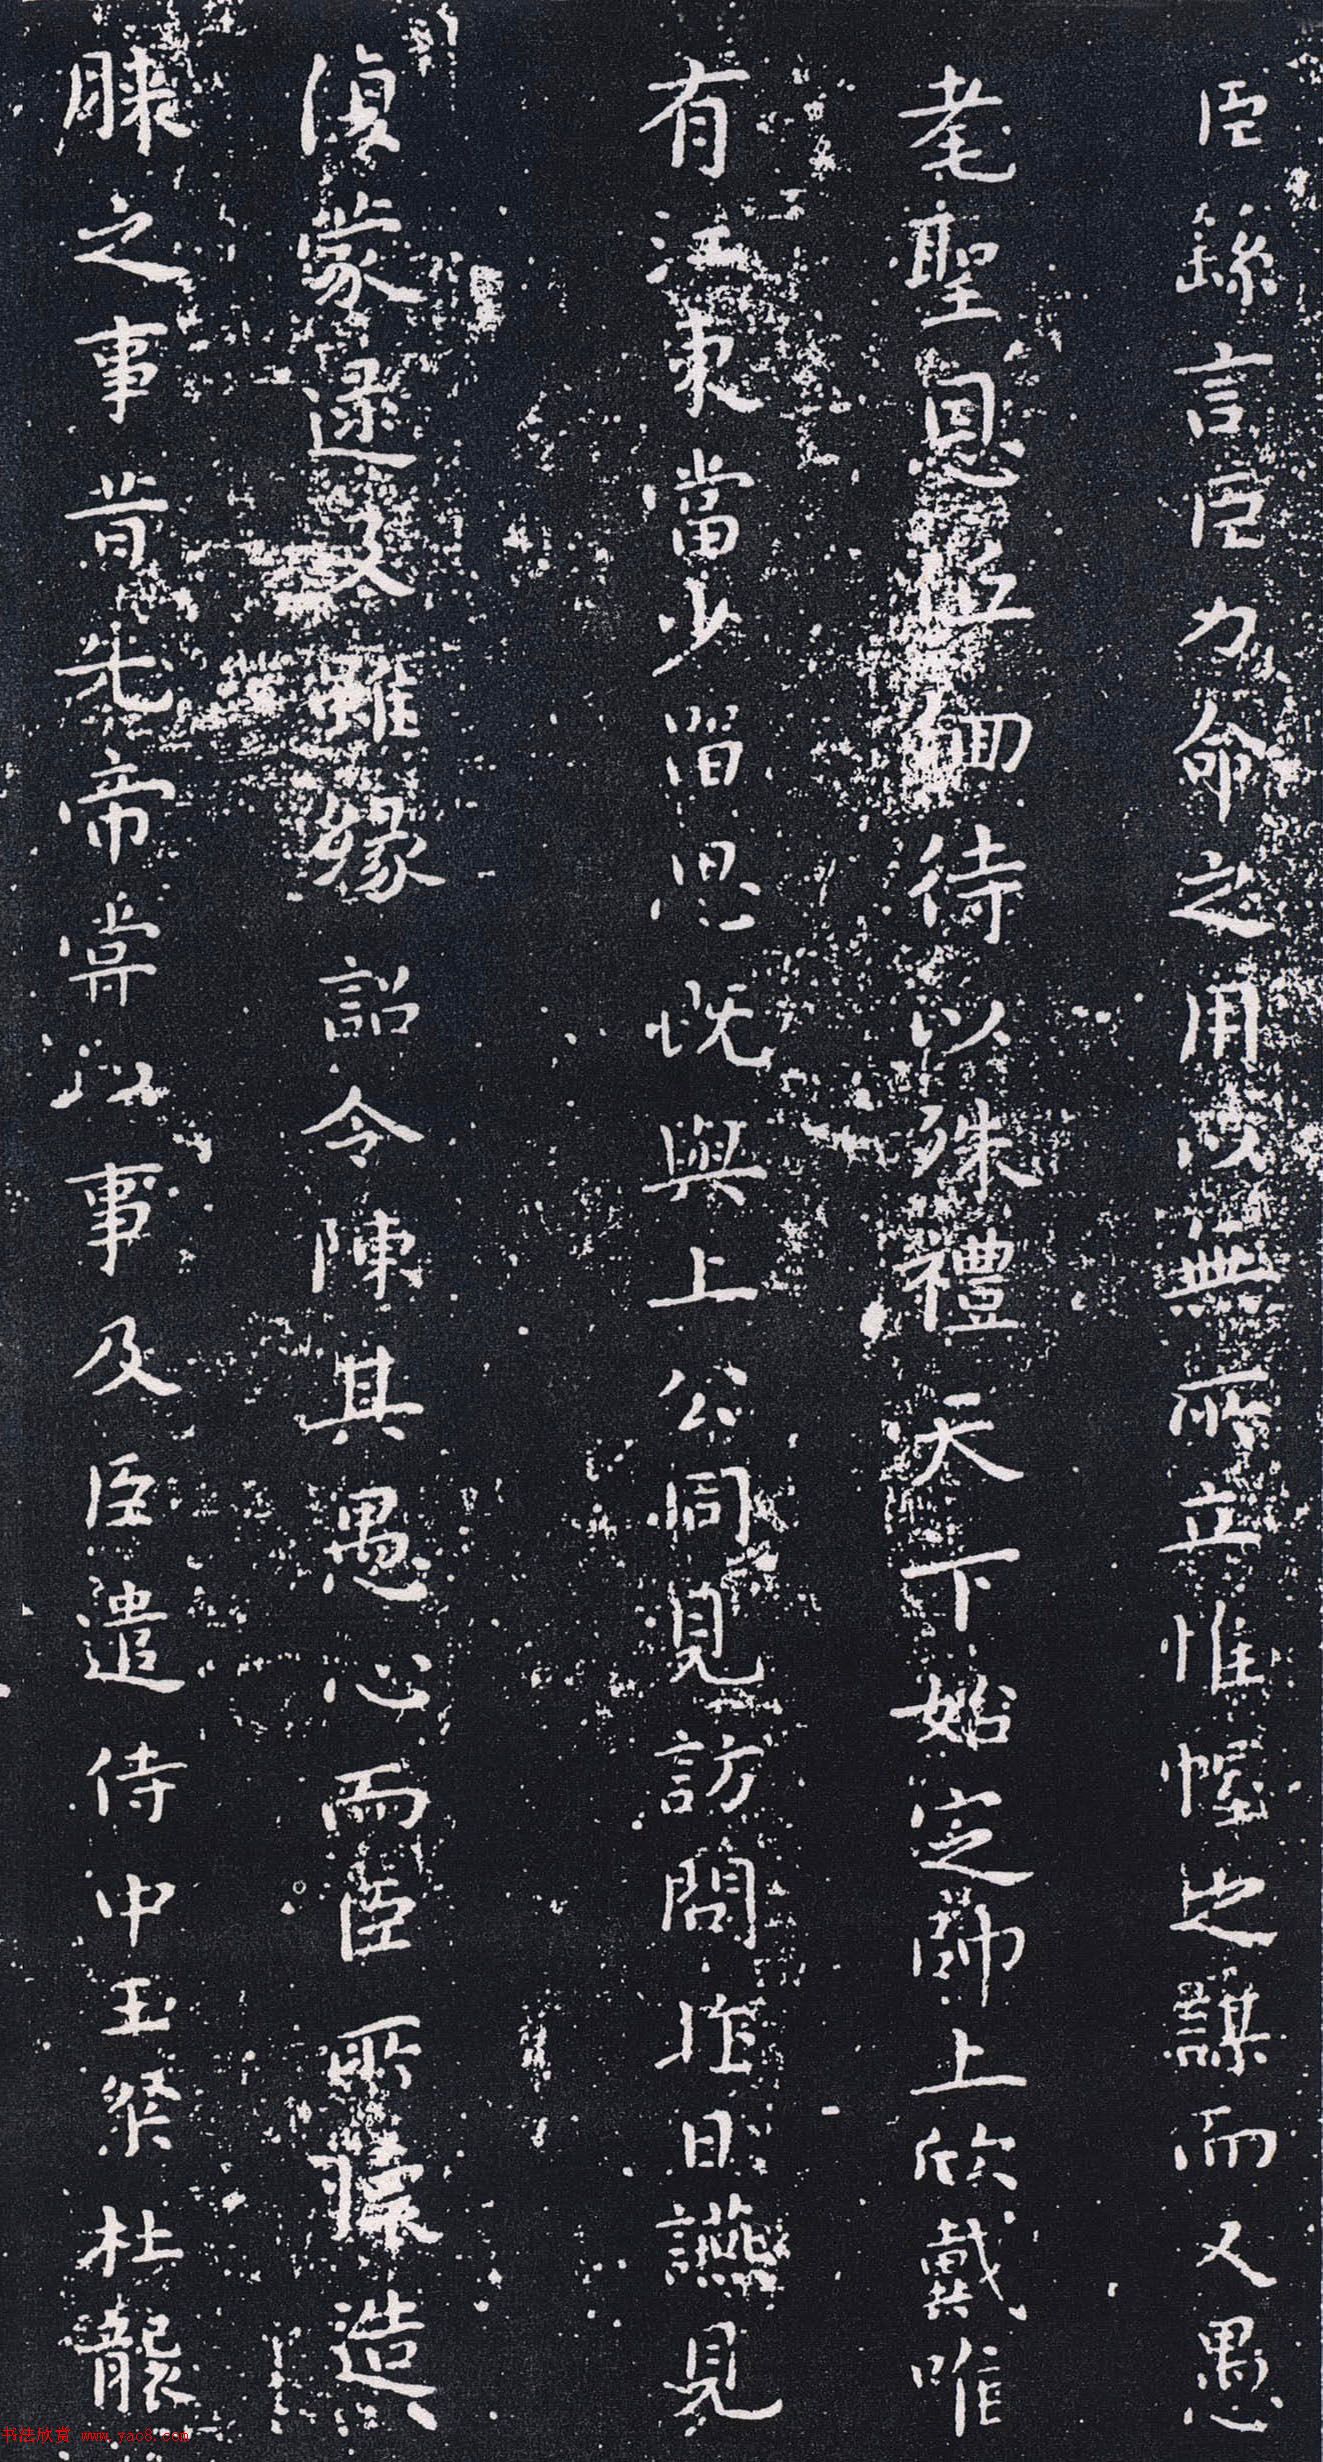 臣繇言臣力命之用以無所立惟幄之謀而又愚
耄聖恩低徊待以殊禮天下始定師上欣戴唯
有江東當少留思既與上公同見訪問昨日讌見
復蒙逮及雖緣詔令陳其愚心而臣所懷造
膝之事昔先帝嘗以事及臣遣侍中王粲杜襲
书法欣赏 www.yac8.com